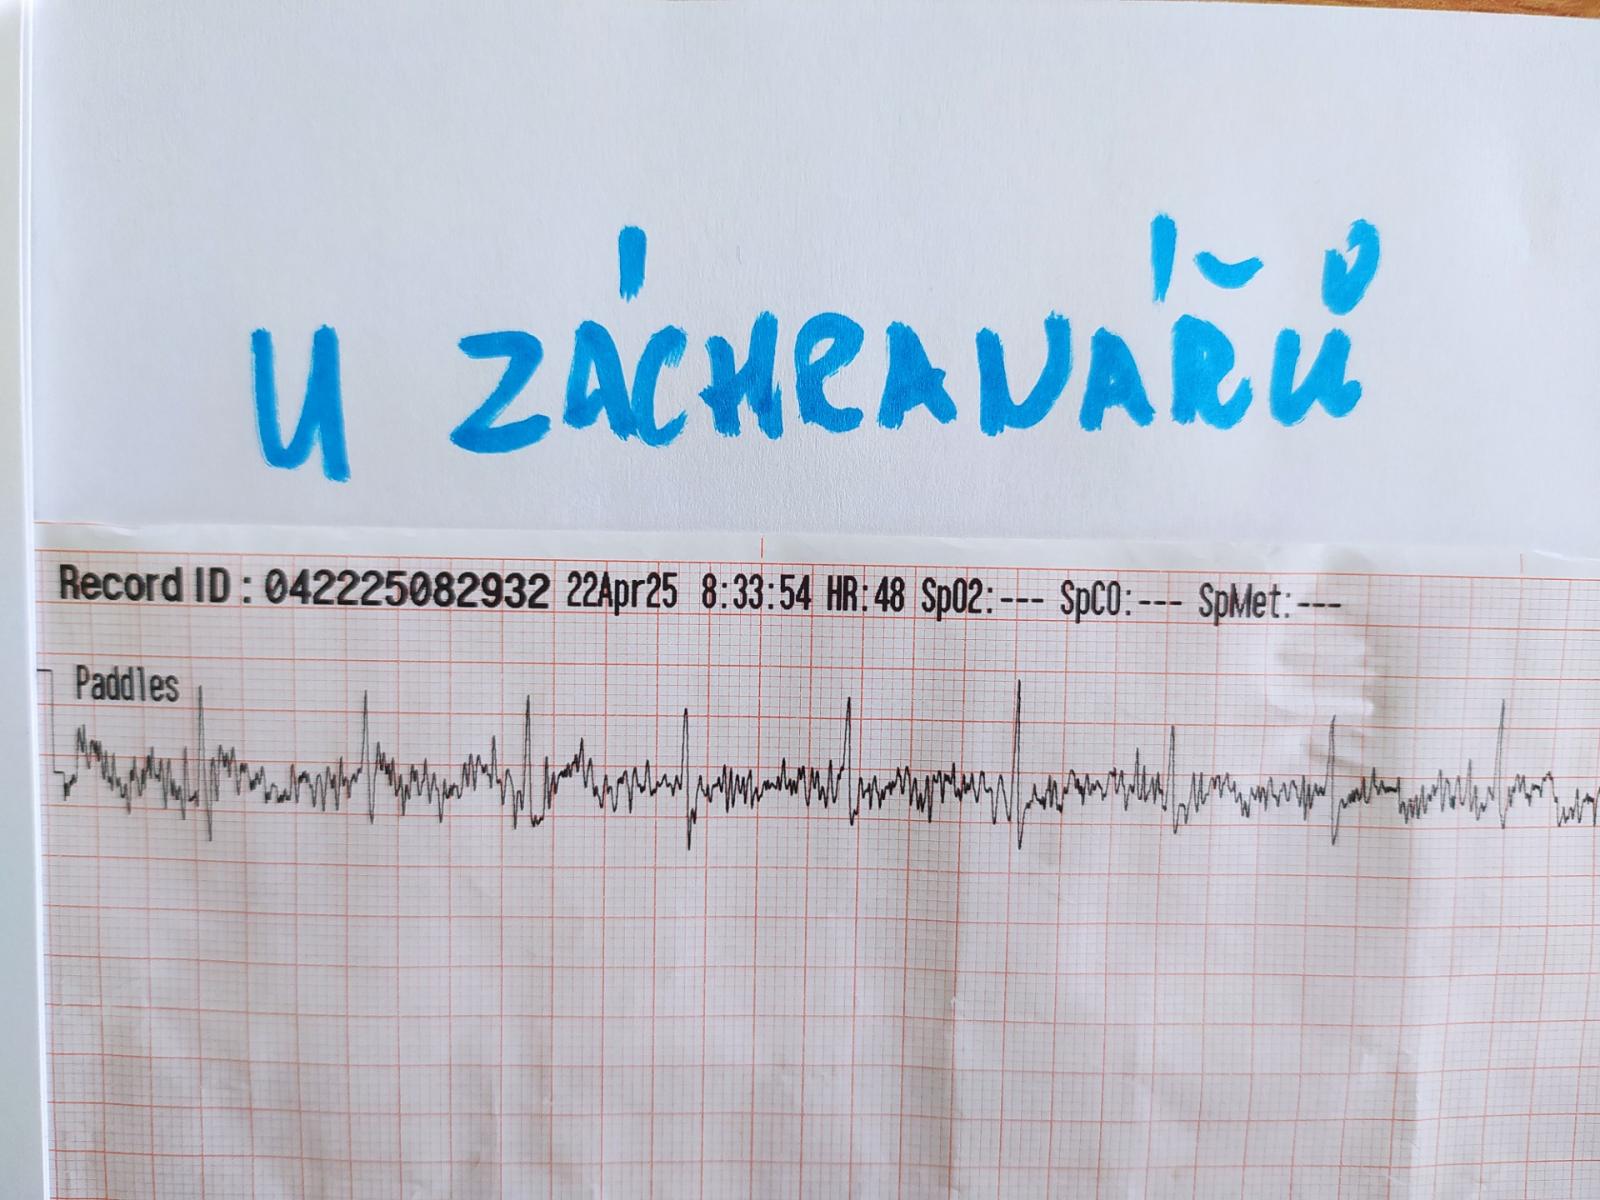 U ZÁCHRANÁŘŮ
Record ID : 042225082932 22Apr25 8:33:54 HR:48 SpO2:--- SpCO:--- SpMet:---
Paddles